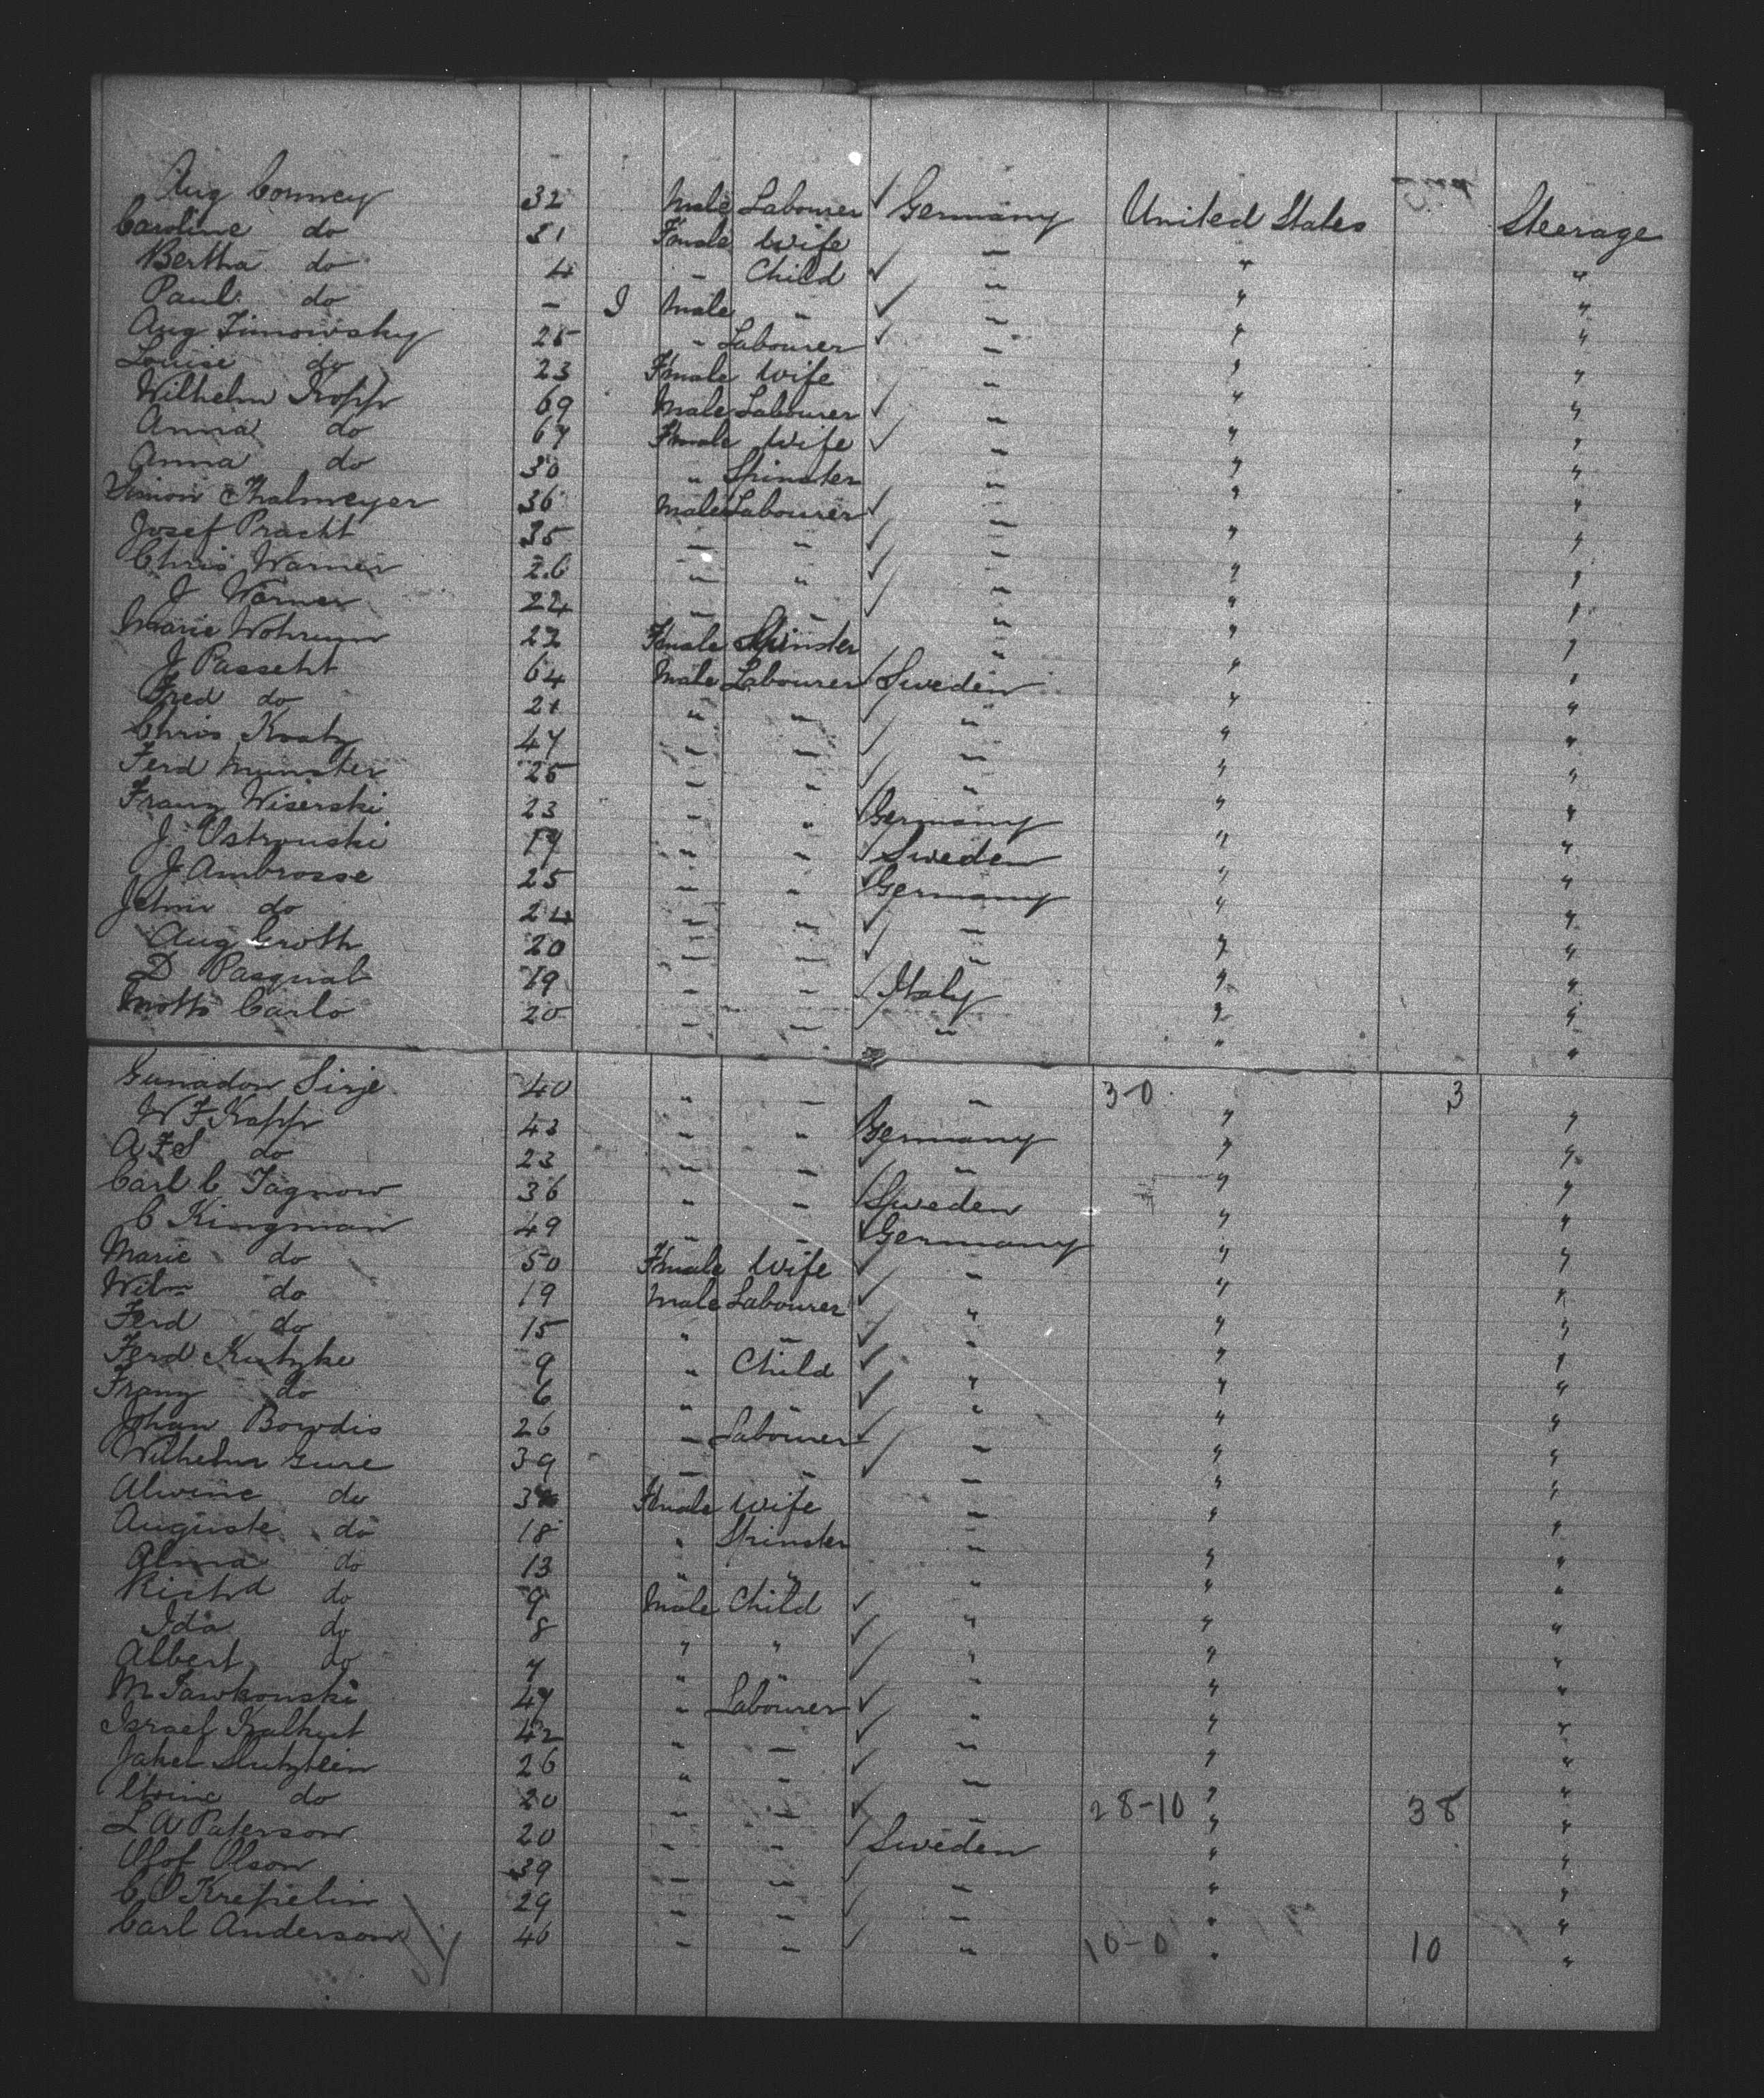 Aug Conney 32 Male Labourer ✓ Germany United States Steerage
Caroline do 31 Female Wife " " "
Bertha do 4 " Child ✓ " " "
Paul do - I Male " ✓ " " "
Aug Zimowsky 25 " Labourer ✓ " " "
Louise do 23 Female Wife " " "
Wilhelm Kopp 69 Male Labourer ✓ " " "
Anna do 67 Female Wife ✓ " " "
Anna do 30 " Spinster " " "
Simon Thalmeyer 36 Male Labourer ✓ " " "
Josef Pracht 35 " " ✓ " " "
Chris Warner 26 " " ✓ " " "
J Warner 22 " " ✓ " " "
Marie 22 Female Spinster " " "
J Passeht 64 Male Labourer ✓ Sweden " "
Fred do 21 " " ✓ " " "
Chris Kratz 47 " " ✓ " " "
Ferd Munster 25 " " ✓ " " "
Franz Wiserski 23 " " ✓ Germany " "
J Ostrouski 19 " " ✓ Sweden " "
J Ambrosse 25 " " ✓ Germany " "
do 24 " " ✓ " " "
Aug Groth 20 " " ✓ " " "
D Pasqual 19 " " ✓ Italy " "
Motto Carlo 20 " " " " "
Gunadon Sirje 40 " " " 3-0 " 3 "
W F Kapp 43 " " Germany " "
A F S do 23 " " ✓ " " "
Carl C Tagnow 36 " " ✓ Sweden " "
C Kingman 49 " " ✓ Germany " "
Marie do 50 Female Wife ✓ " " "
Wilm do 19 Male Labourer ✓ " " "
Ferd do 15 " " ✓ " " "
Ferd Kutzke 9 " Child ✓ " " "
Franz do 6 " " ✓ " " "
Johan Bowdis 26 " Labourer ✓ " " "
Wilhelm Gure 39 " " ✓ " " "
Alwine do Female Wife " " "
Auguste do 18 " Spinster " " "
Alma do 13 " " " " "
Richd do 9 Male Child ✓ " " "
Ida do 8 " " ✓ " " "
Albert do 7 " " ✓ " " "
M Tawkonski 47 " Labourer ✓ " " "
Israel Kalhut 42 " " ✓ " " "
Jakel 26 " " ✓ " " "
do 20 " " ✓ " 28-10 " 38 "
L A Paterson 20 " " ✓ Sweden " "
Olof Olson 39 " " ✓ " " "
C O Krepelin 29 " " ✓ " " "
Carl Anderson 40 " " ✓ " 10-0 " 10 "